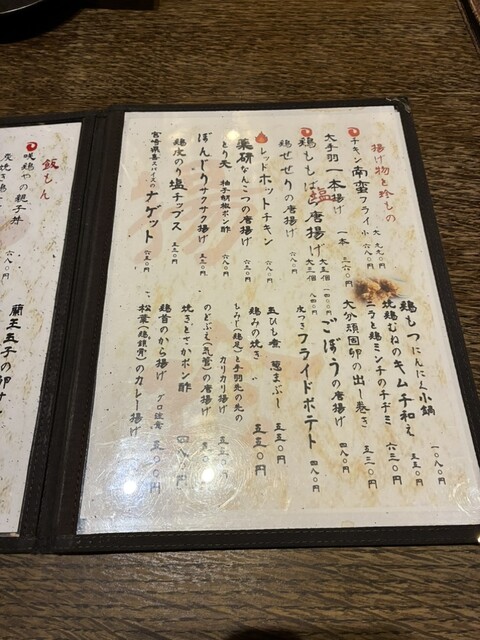 揚げ物と珍もの
チキン南蛮フライ 大 九九〇円
小 六八〇円
大手羽一本揚げ 一本 三六〇円
鶏ももぱら塩唐揚げ 大五個 一四〇〇円
大三個 八四〇円
鶏せせりの唐揚げ 六八〇円
レッドホットチキン 六八〇円
薬研なんこつの唐揚げ 六三〇円
とり天 柚子胡椒ポン酢 七八〇円
ぼんじりサクサク揚げ 五三〇円
鶏皮のり塩チップス 五三〇円
宮崎県喜スパイスのナゲット 六三〇円
鶏もつにんにく小鍋 一〇八〇円
焼鶏むねのキムチ和え 六三〇円
ニラと鶏ミンチのチヂミ 五三〇円
大分頑固卵の出し巻き
ごぼうの唐揚げ 四八〇円
皮つきフライドポテト 四八〇円
玉ひも煮 葱まぶし 五五〇円
鶏みの焼き 五五〇円
もみじ(鶏足)と手羽先の先の
カリカリ揚げ 五五〇円
のどぶえ(気管)の唐揚げ
焼きとさかポン酢 四八〇円
鶏首のから揚げ グロ注意 五五〇円
松葉(鶏鎖骨)のカレー揚げ
飯もん
咲鶏やの親子丼 六八〇円
炭焼き鶏
蘭王玉子の卵